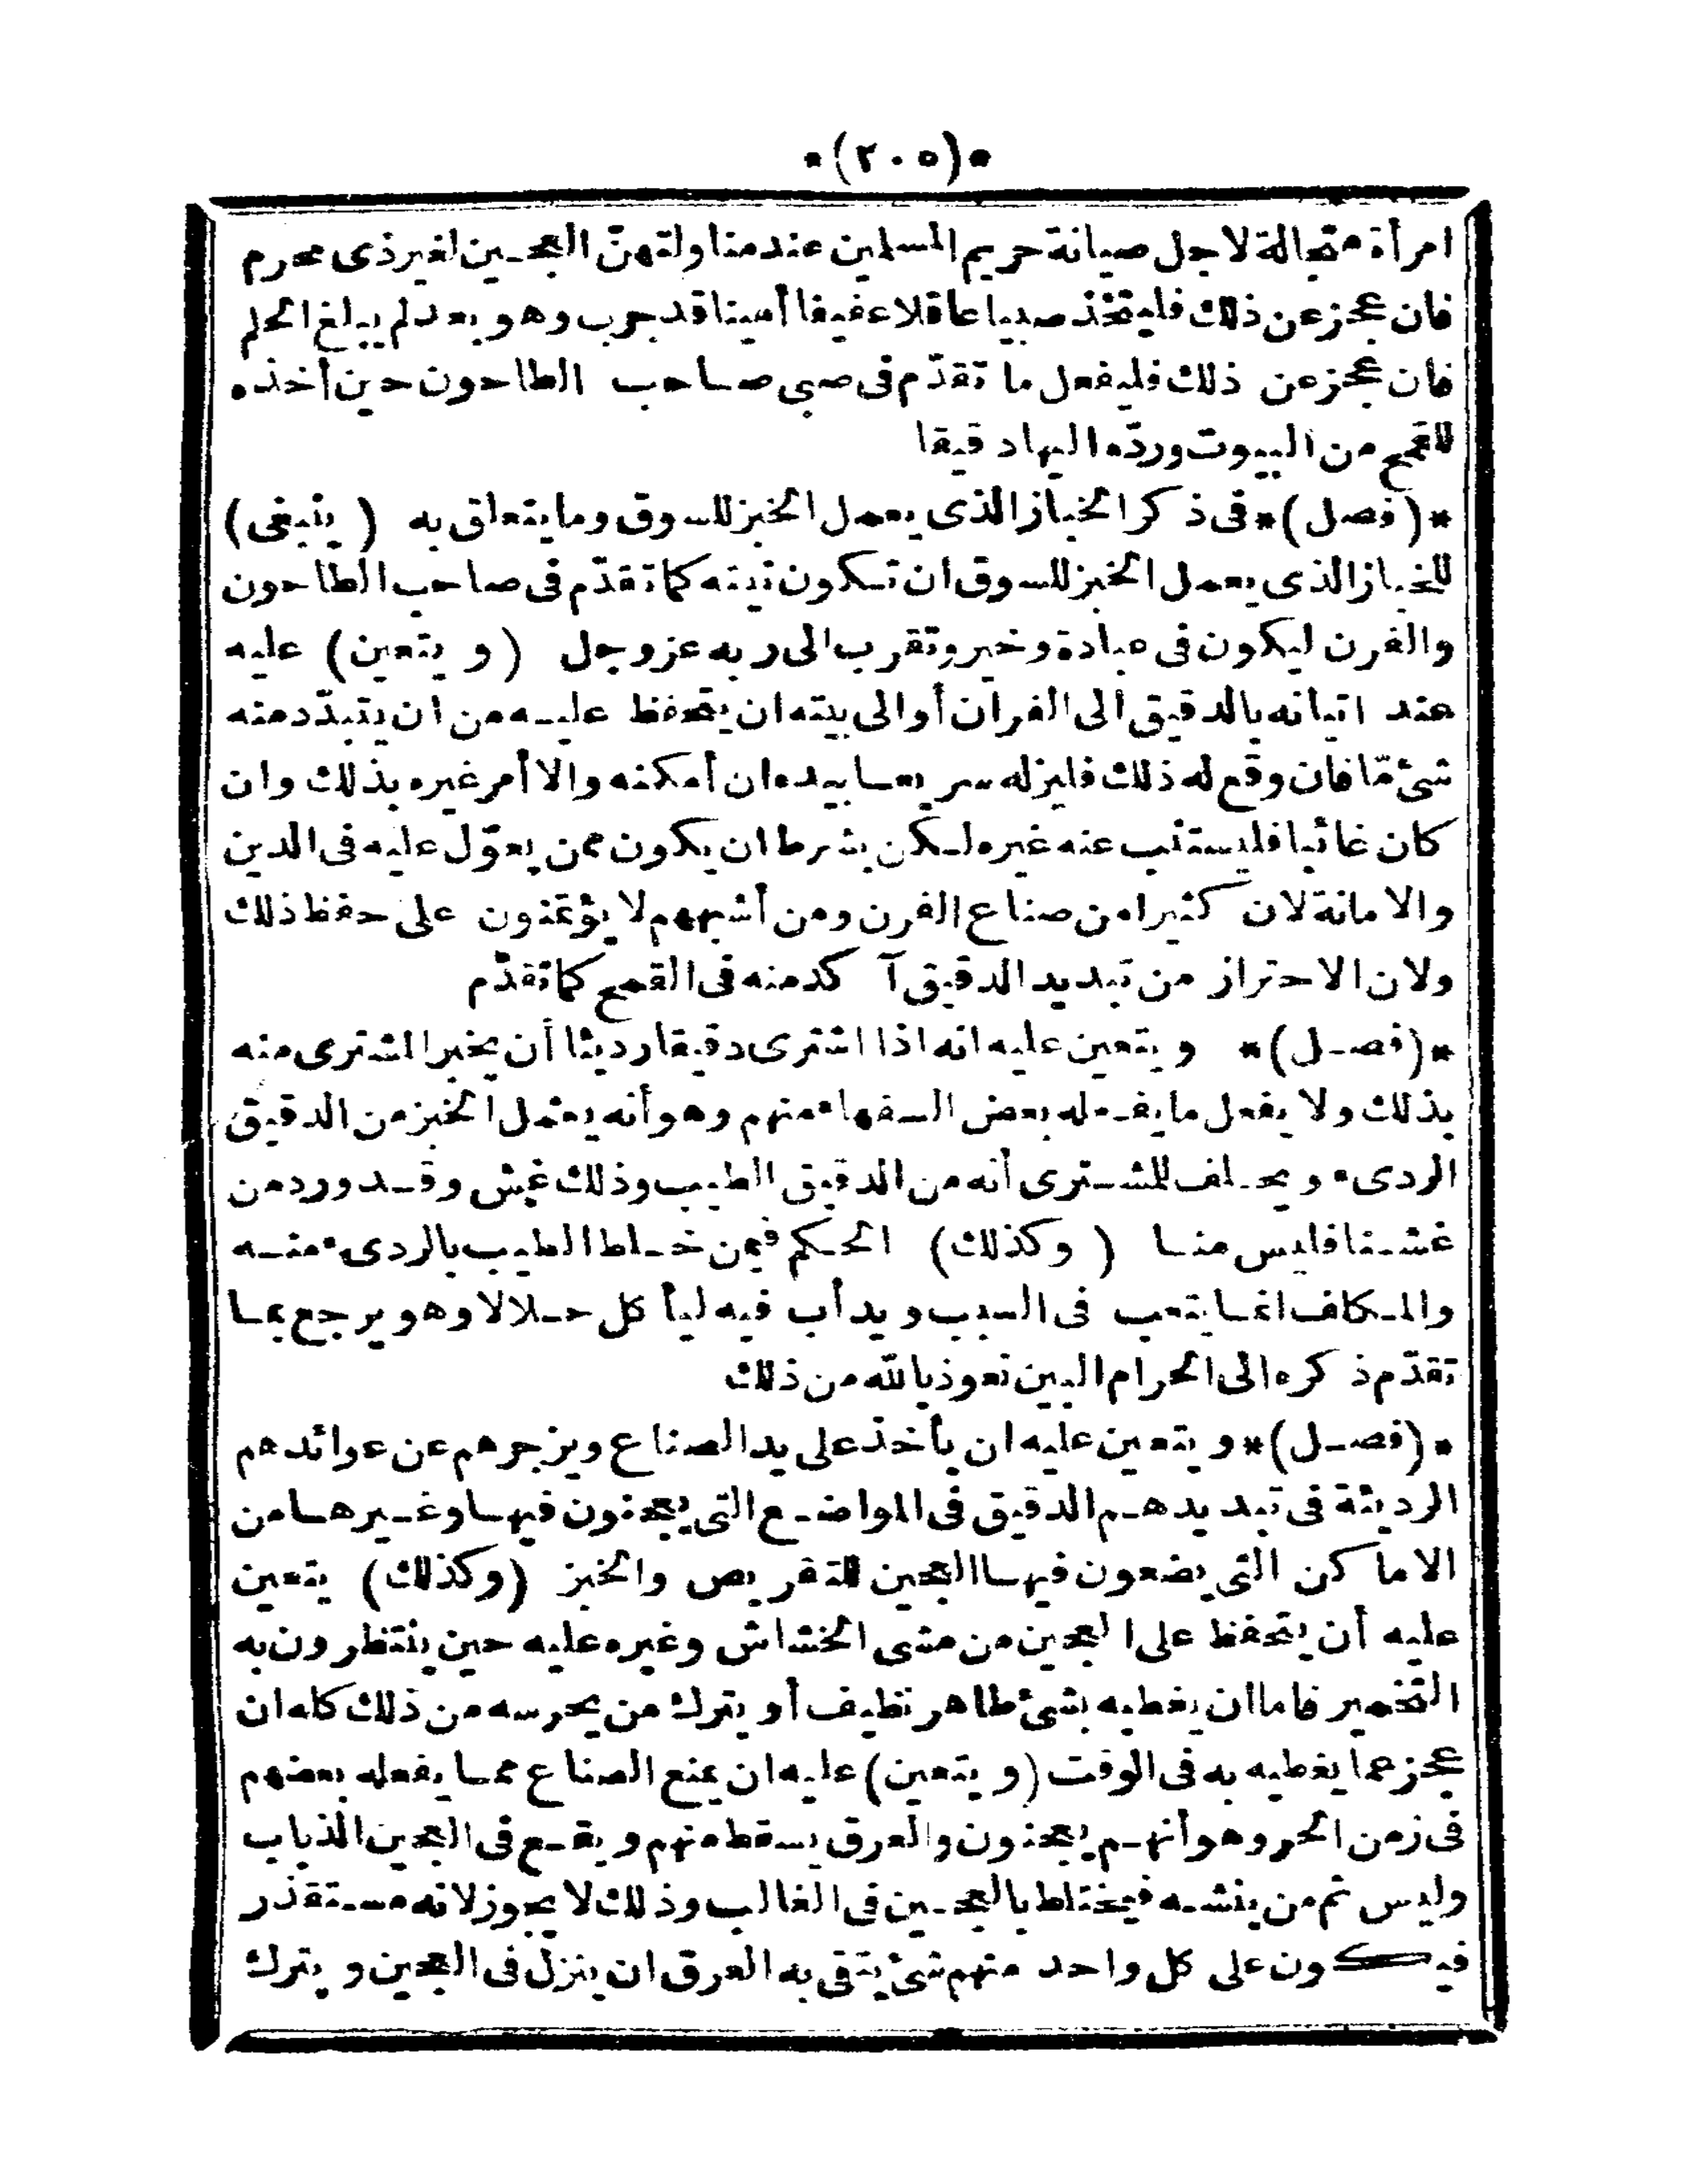 *(٢٠٥)*
امرأة متجالة لاجل صيانة حريم المسلمين عند مناولتهنّ العجين لغير ذى محرم
فان عجز عن ذلك فليتخذ صبيا عاقلا عفيفا أمينا قد جرب وهو بعد لم يبلغ الحلم
فان عجز عن ذلك فليفعل ما تقدّم فى صبى صاحب الطاحون حين أخذه
للقمح من البيوت وردّه اليها دقيقا
*(فصل)* فى ذكر الخباز الذى يعمل الخبز للسوق وما يتعلق به (ينبغى)
للخباز الذى يعمل الخبز للسوق ان تكون نيته كما تقدّم فى صاحب الطاحون
والفرن ليكون فى عبادة وخير وتقرب الى ربه عز وجل (ويتعين) عليه
عند اتيانه بالدقيق الى الفران أو الى بيته ان يتحفظ عليه من ان يتبدّد منه
شئ مّا فان وقع له ذلك فليزله سريعا بيده ان أمكنه والا أمر غيره بذلك وان
كان غائبا فليستنب عنه غيره لكن بشرط ان يكون ممن يعوّل عليه فى الدين
والامانة لان كثيرا من صناع الفرن ومن أشبههم لا يؤتمنون على حفظ ذلك
ولان الاحتراز من تبديد الدقيق آكد منه فى القمح كما تقدّم
*(فصل)* ويتعين عليه انه اذا اشترى دقيقا رديئا أن يخبر المشترى منه
بذلك ولا يفعل ما يفعله بعض السفهاء منهم وهو أنه يعمل الخبز من الدقيق
الردىء ويحلف للمشترى أنه من الدقيق الطيب وذلك غش وقد ورد من
غشنا فليس منا (وكذلك) الحكم فيمن خلط الطيب بالردىء منه
والمكلف انما يتعب فى السبب ويدأب فيه ليأكل حلالا وهو يرجع بما
تقدّم ذكره الى الحرام البين نعوذ بالله من ذلك
*(فصل)* ويتعين عليه ان يأخذ على يد الصناع ويزجرهم عن عوائدهم
الرديئة فى تبديدهم الدقيق فى المواضع التى يعجنون فيها وغيرها من
الاماكن التى يضعون فيها العجين للتقريص والخبز (وكذلك) يتعين
عليه أن يتحفظ على العجين من مشى الخشاش وغيره عليه حين ينتظرون به
التخمير فاما ان يغطيه بشئ طاهر نظيف أو يترك من يحرسه من ذلك كله ان
عجز عما يغطيه به فى الوقت (ويتعين) عليه ان يمنع الصناع مما يفعله بعضهم
فى زمن الحر وهو أنهم يعجنون والعرق يسقط منهم ويقع فى العجين الذباب
وليس ثم من ينشه فيختلط بالعجين فى الغالب وذلك لا يجوز لانه مستقذر
فيكون على كل واحد منهم شئ يتقى به العرق ان ينزل فى العجين ويترك